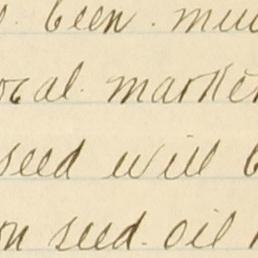 been mu
ocal market
seed will b
on seed oil